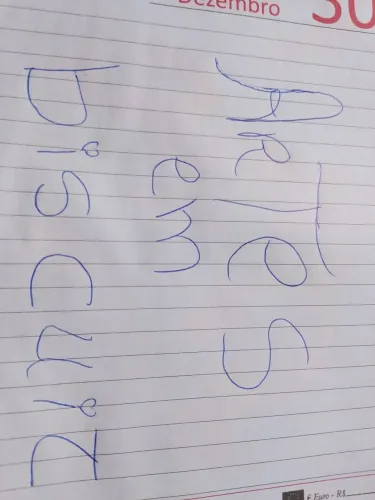 Dezembro 30
ARTes
em
biscuiz
€ Euro - R$